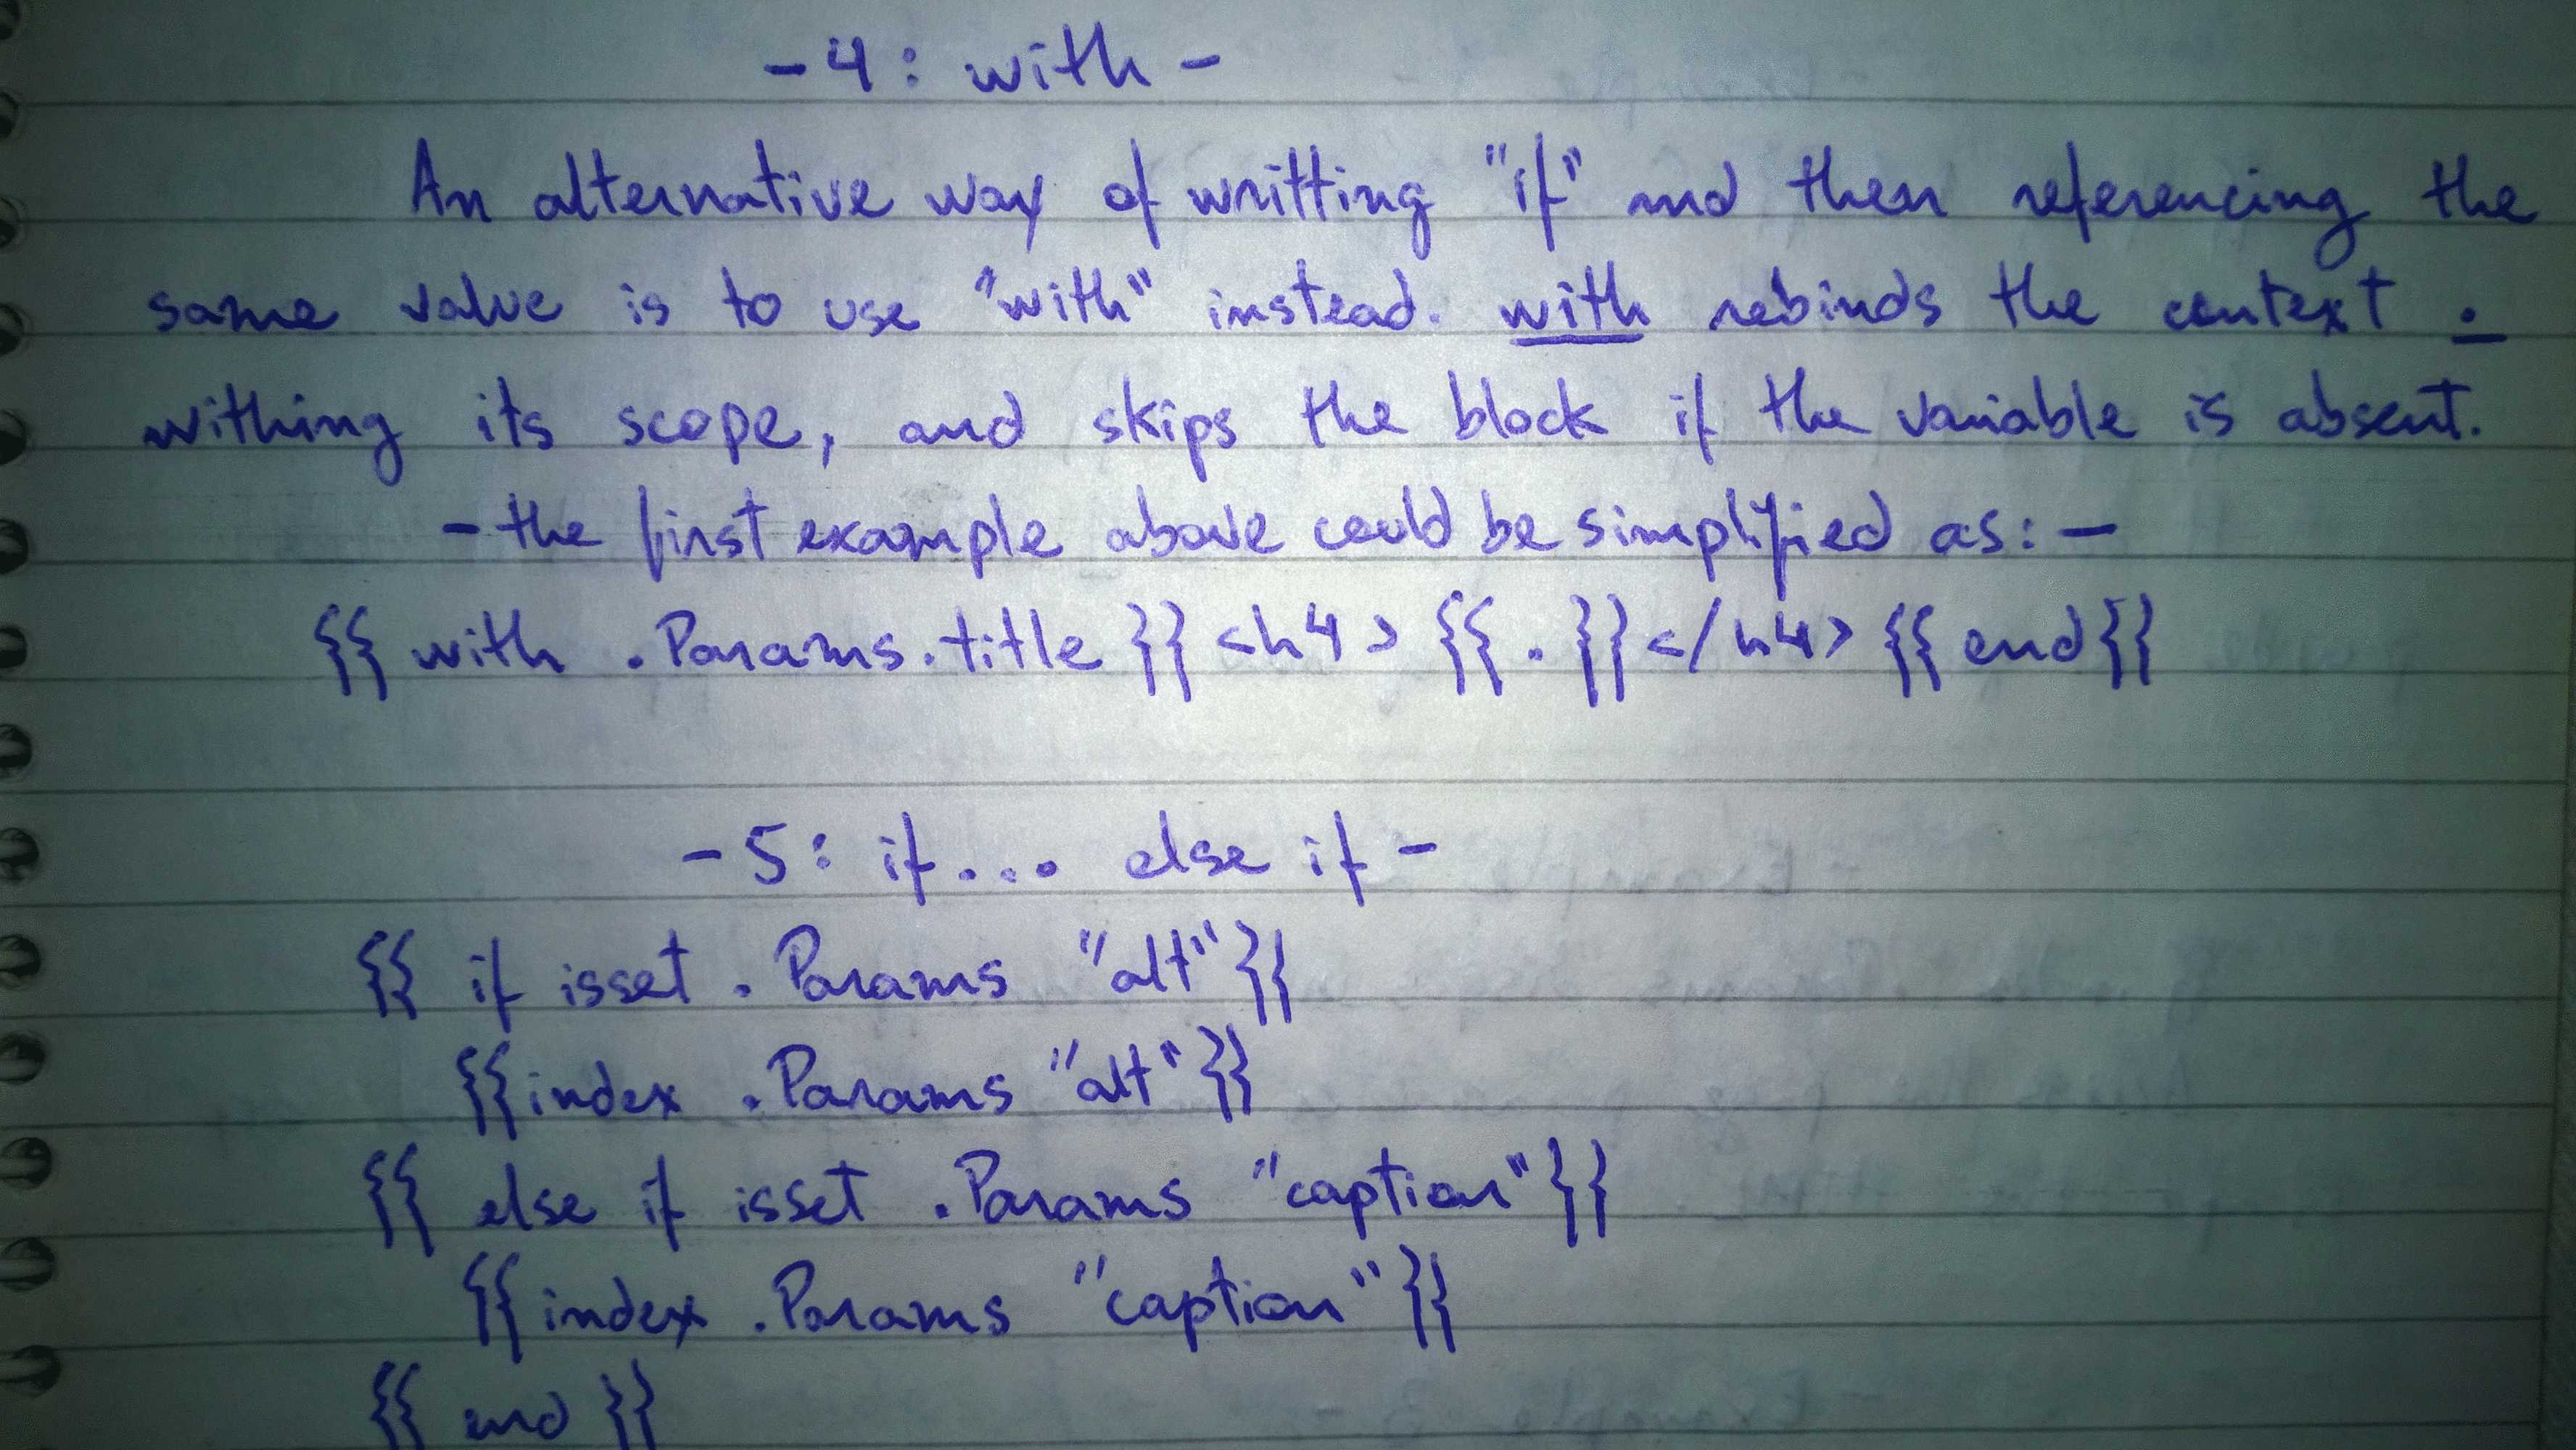 -4: with-
An alternative way of writting "if" and then referencing the
same value is to use "with" instead. with rebinds the context .
withing its scope, and skips the block if the variable is absent.
- the first example above could be simplified as: -
{{ with .Params.title }} <h4> {{ . }} </h4> {{ end }}
-5: if... else if-
{{ if isset .Params "alt" }}
{{ index .Params "alt" }}
{{ else if isset .Params "caption" }}
{{ index .Params "caption" }}
{{ end }}